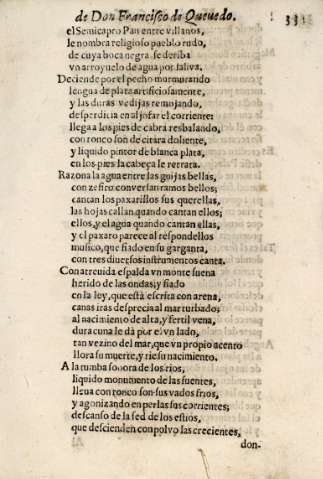 de Don Francisco de Queuedo. 331
el Semicapro Pan entre villanos,
le nombra religioso pueblo rudo,
de cuya boca negra se deriba
vn arroyuelo de agua por saliva.
Deciende por el pecho murmurando
lengua de plata artificiosamente,
y las duras vedijas remojando,
desperdicia en aljofar el corriente:
llega a los pies de cabra resbalando,
con ronco son de citara doliente,
y liquido pintor de blanca plata,
en los pies la cabeça le retrata.
Razona la agua entre las guijas bellas,
con zefiro conversan ramos bellos;
cantan los paxarillos sus querellas,
las hojas callan quando cantan ellos;
ellos, y el agua quando cantan ellas,
y el paxaro parece al respondellos
musico, que fiado en su garganta,
con tres diuersos instrumentos canta.
Con atreuida espalda vn monte suena
herido de las ondas; y fiado
en la ley, que està escrita con arena,
canas iras desprecia al mar turbado;
al nacimiento de alta, y fertil vena,
dura cuna le dà por el vn lado,
tan vezino del mar, que vn propio acento
llora su muerte, y rie su nacimiento.
A la tumba sonora de los rios,
liquido monumento de las fuentes,
lleua con ronco son sus vados frios,
y agonizando en perlas sus corrientes;
descanso de la sed de los estios,
que descienden con polvo las crecientes,
don-